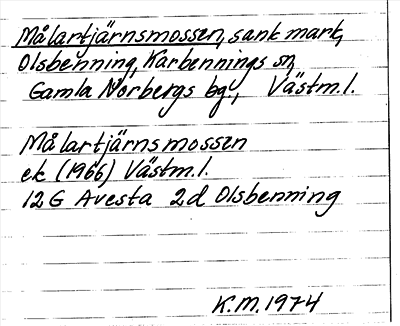 Målartjärnsmossen, sank mark,
Olsbenning, Karbennings sn,
Gamla Norbergs bg., Västm.l.
Målartjärnsmossen
ek (1966) Västm.l.
12 G Avesta 2d Olsbenning
K.M. 1974